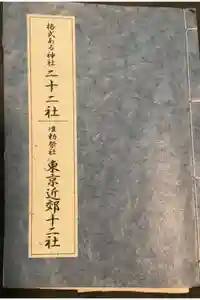 格式ある神社
二十二社
准勅祭社
東京近郊十二社